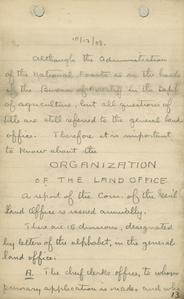 10/13/08.
Although the Administration
of the National Forests is in the hands
of the Bureau of Forestry in the Dept
of agriculture, but all questions of
title are still referred to the general land
office. Therefore it is important
to know about the
ORGANIZATION
OF THE LAND OFFICE
A report of the Com. of the Gen'l
Land Office is issued annually.
There are 16 divisions, designated
by letters of the alphabet, in the general
land office.
A. The chief clerks office, to whom
primary application is made and who
13